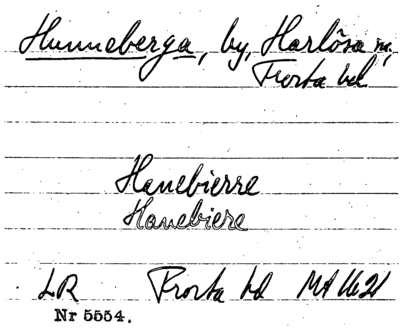 Hunneberga, by, Harlösa sn,
Frosta hd
Hanebierre
Hanebiere
LR Frosta hd MA 1621
Nr 5554.